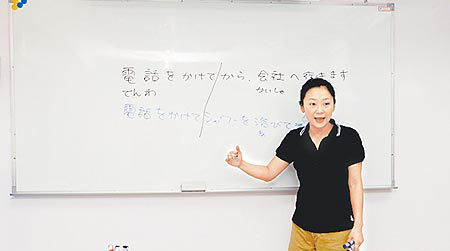 電話をかけてから、会社へ行きます
でんわ かいしゃ
電話をかけてシャワーを浴びて
あ